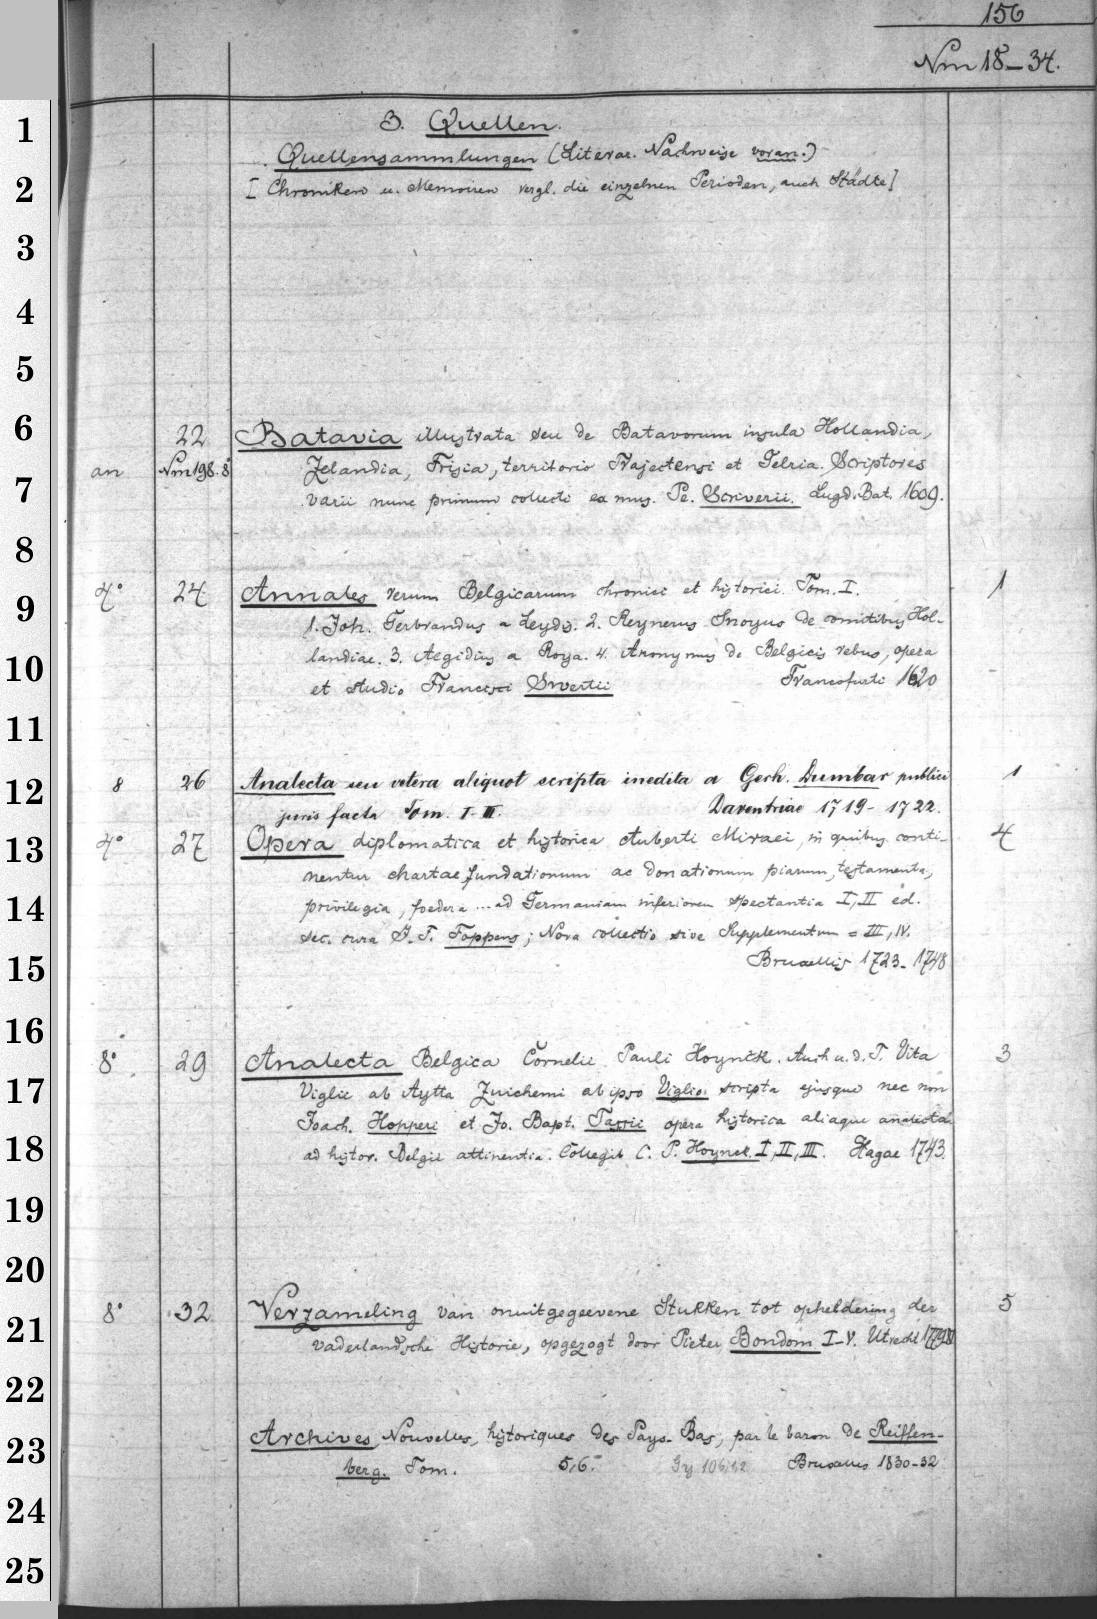 156
Nm 18-34.
3. Quellen.
Quellensammlungen (Literar. Nachweise voran.)
[Chroniken u. Memoiren vergl. die einzelnen Perioden, auch Städte]
22 Batavia illustrata seu de Batavorum insula Hollandia,
an Nm 198.8° Zelandia, Frisia, territorio Trajectensi et Gelria. Scriptores
varii nunc primum collecti ex mus. Pe. Scriverii. Lugd. Bat. 1609.
4° 24 Annales rerum Belgicarum chronici et historici. Tom. I. 1
1. Joh. Gerbrandus a Leydis. 2. Reynerus Snoyus de comitibus Hol-
landiae. 3. Aegidius a Roya. 4. Anonymus de Belgicis rebus, opera
et studio Francisci Swertii Francofurti 1620
8 26 Analecta seu vetera aliquot scripta inedita a Gerh. Dumbar publici 1
juris facta Tom. I-III. Daventriae 1719-1722.
4° 27 Opera diplomatica et historica Auberti Miraei, in quibus conti- 4
nentur chartae fundationum ac donationum piarum, testamenta,
privilegia, foedera ... ad Germaniam inferiorem spectantia I, II ed.
sec. cura J. F. Foppens; Nova collectio sive Supplementum = III, IV.
Bruxellis 1723-1748
8° 29 Analecta Belgica Cornelii Pauli Hoynck. Auch u. d. T. Vita 3
Viglii ab Aytta Zuichemi ab ipso Viglio scripta ejusque nec non
Joach. Hopperi et Jo. Bapt. Tassii opera historica aliaque analecta
ad histor. Belgii attinentia. Collegit C. P. Hoynck. I, II, III. Hagae 1743.
8° 32 Verzameling van onuitgegeevene Stukken tot opheldering der 5
vaderlandsche Historie, opgezogt door Pieter Bondam I-V. Utrecht
Archives, Nouvelles, historiques des Pays-Bas, par le baron de Reiffen-
berg. Tom. 5,6. Bruxelles 1830-32
1
2
3
4
5
6
7
8
9
10
11
12
13
14
15
16
17
18
19
20
21
22
23
24
25